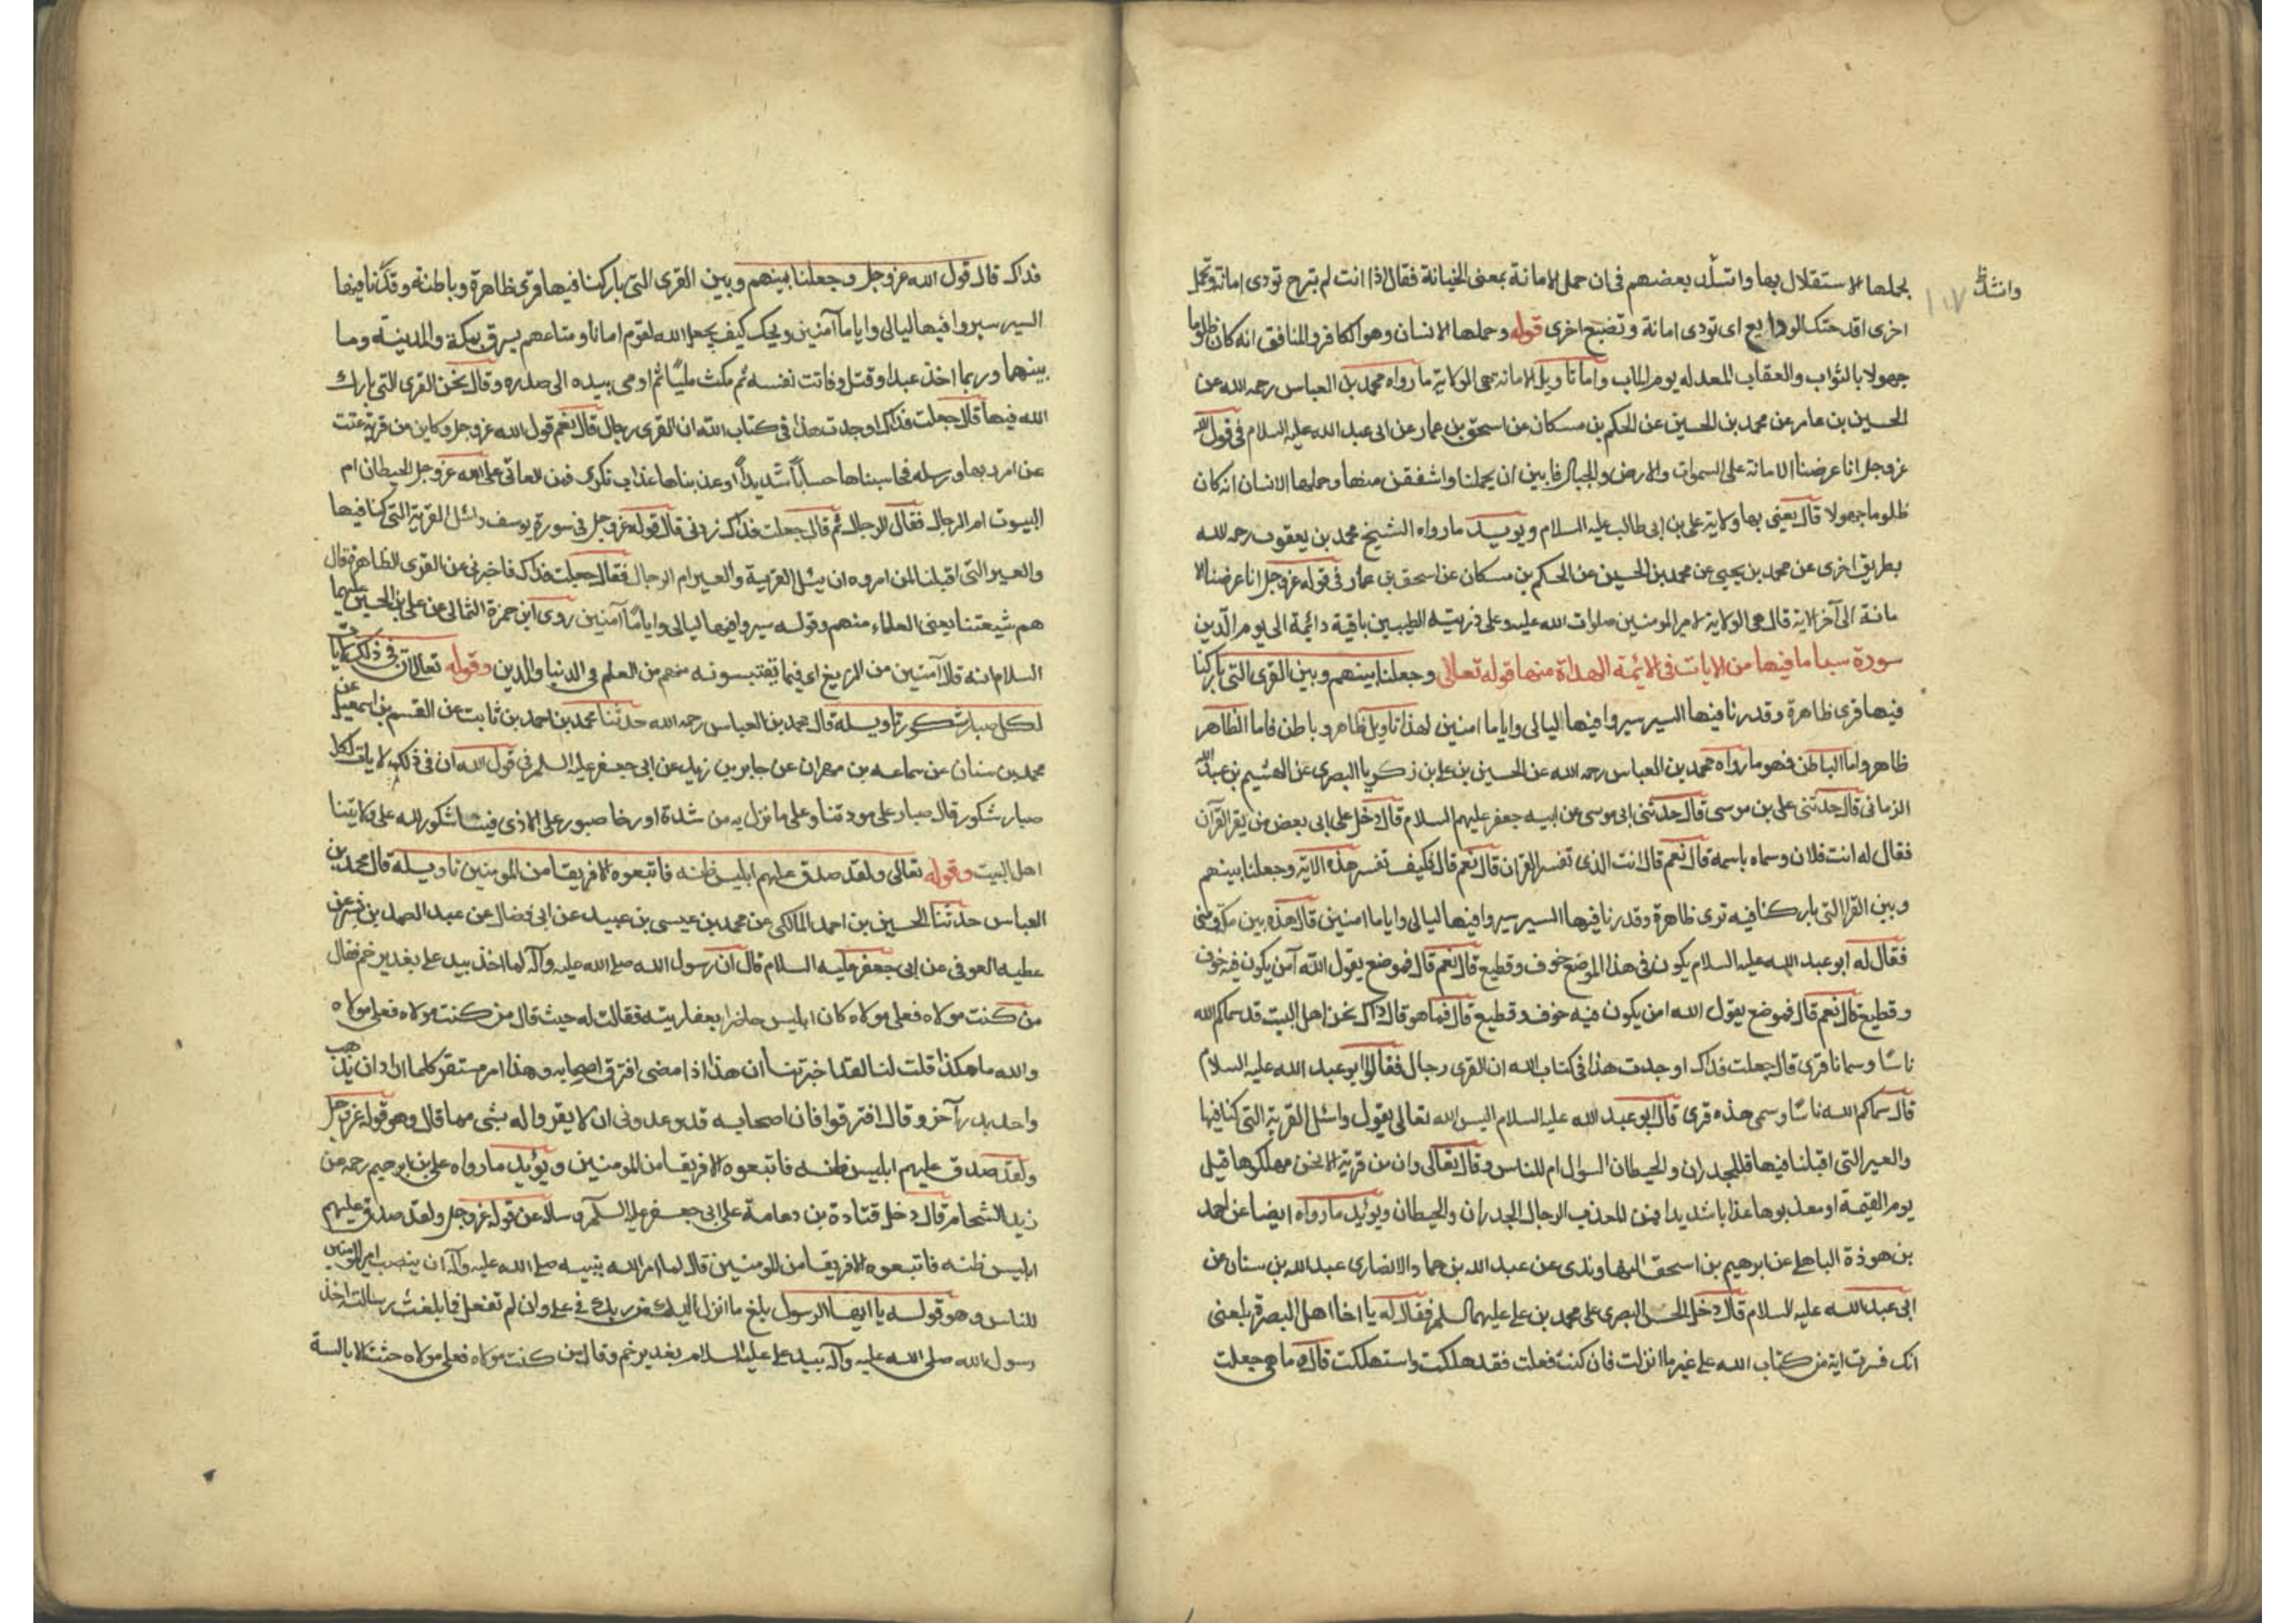 يحملها الاستقلال بها وانشد بعضهم فى ان حمل الامانة بمعنى الخيانة فقال اذا انت لم تبرح تودى امانة وتحمل
وانشد
١٠٧
اخرى افدحتك الودايع اى تودى امانة وتضيع اخرى قوله وحملها الانسان وهو الكافر والمنافق انه كان ظلوما
جهولا بالثواب والعقاب المعد له يوم المآب واما تاويل الامانة هى الولاية ما رواه محمد بن العباس رحمه الله عن
الحسين بن عامر عن محمد بن الحسين عن الحكم بن مسكان عن اسحق بن عمار عن ابى عبد الله عليه السلام فى قول الله
عزوجل انا عرضنا الامانة على السموات والارض والجبال فابين ان يحملنا واشفقن منها وحملها الانسان انه كان
ظلوما جهولا قال يعنى بها ولاية على بن ابى طالب عليه السلام ويويده ما رواه الشيخ محمد بن يعقوب رحمه الله
بطريق اخرى عن محمد بن يحيى عن محمد بن الحسين عن الحكم بن مسكان عن اسحق بن عمار فى قوله عزوجل انا عرضنا الا
مانة الى آخر الاية قال هى الولاية لامير المومنين صلوات الله عليه وعلى ذريته الطيبين باقية دائمة الى يوم الدين
سورة سبا ما فيها من الايات فى الائمة الهداة منها قوله تعالى وجعلنا بينهم وبين القرى التى باركنا
فيها قرى ظاهرة وقدرنا فيها السير سيروا فيها ليالى واياما امنين لهذا تاويل ظاهر وباطن فاما الظاهر
ظاهر واما الباطن فهو ما رواه محمد بن العباس رحمه الله عن الحسين بن على بن زكريا البصرى عن الهشيم بن عبد الله
الرمانى قال حدثنى على بن موسى قال حدثنى ابى موسى عن ابيه جعفر عليهم السلام قال دخل على ابى بعض من يقرا القرآن
فقال له انت فلان وسماه باسمه قال نعم قال انت الذى تفسر القران قال نعم قال فكيف تفسر هذه الاية وجعلنا بينهم
وبين القرا التى باركنا فيه قرى ظاهرة وقدرنا فيها السير سيروا فيها ليالى واياما امنين قال هذه بين مكة ومنى
فقال له ابو عبد الله عليه السلام يكون فى هذا الموضع خوف وقطيع قال نعم قال فموضع يقول الله آمن يكون فيه خوف
وقطيع قال نعم قال فموضع يقول الله امن يكون فيه خوف وقطيع قال فما هو قال ذاك نحن اهل البيت قد سماكم الله
ناسًا وسمانا قرى قال جعلت فداك اوجدت هذا فى كتاب الله ان القرى رجال فقال ابو عبد الله عليه السلام
قال سماكم الله ناسًا وسمى هذه قرى قال ابو عبد الله عليه السلام اليس الله تعالى يقول واسئل القرية التى كنا فيها
والعير التى اقبلنا فيها فللجدران والحيطان السوال ام للناس وقال تعالى وان من قرية الا نحن مهلكوها قبل
يوم القيمة او معذبوها عذابا شديدا فمن المعذب الرجال ام الجدران والحيطان ويؤيده ما رواه ايضا عن احمد
بن هوذة الباهلى عن ابرهيم بن اسحق النهاوندى عن عبد الله بن حماد الانصارى عبد الله بن سنان عن
ابى عبد الله عليه السلام قال دخل الحسن البصرى على محمد بن على عليهما السلم فقال له يا اخا اهل البصرة بلغنى
انك فسرت اية من كتاب الله على غير ما انزلت فان كنت فعلت فقد هلكت واستهلكت قال وما هى جعلت
فداك قال قول الله عزوجل وجعلنا بينهم وبين القرى التى باركنا فيها قرى ظاهرة وباطنة وقدرنا فيها
السير سيروا فيها ليالى واياما آمنين ويحك كيف يجعل الله لقوم امانا ومتاعهم يسرق بمكة والمدينة وما
بينهما وربما اخذ عبدا وقتل وفاتت نفسه ثم مكث مليًا ثم اومى بيده الى صدره وقال نحن القرى التى بارك
الله فيها قال جعلت فداك اوجدت هذا فى كتاب الله ان القرى رجال قال نعم قول الله عزوجل وكاين من قرية عتت
عن امر ربها ورسله فحاسبناها حسابًا شديدًا وعذبناها عذابا نكرى فمن العاتى على الله عزوجل الحيطان ام
البيوت ام الرجال فقال الرجال ثم قال جعلت فداك زدنى قال قوله عزوجل فى سورة يوسف واسئل القرية التى كنا فيها
والعير التى اقبلنا لمن امروه ان يسئل القرية والعير ام الرجال فقال جعلت فداك فاخبرنى عن القرى الظاهرة قال
هم شيعتنا يعنى العلماء منهم وقوله سيروا فيها ليالى واياما آمنين روى ابن حمزة الثمالى عن على بن الحسين عليهما
السلام انه قال آمنين من الزيغ اى فيما يقتبسونه منهم من العلم فى الدنيا والدين وقوله تعالى ان فى ذلك لآيات
لكل صبار شكور تاويله قال محمد بن العباس رحمه الله حدثنا محمد بن احمد بن ثابت عن القسم بن اسمعيل عن
محمد بن سنان عن سماعه بن مهران عن جابر بن يزيد عن ابى جعفر عليه السلم فى قول الله ان فى ذلك لايات لكل
صبار شكور قال صبار على مودتنا وعلى ما نزل به من شدة او رخا صبور على الاذى فينا شكور لله على ولايتنا
اهل البيت وقوله تعالى ولقد صدق عليهم ابليس ظنه فاتبعوه الا فريقا من المومنين تاويله قال محمد بن
العباس حدثنا الحسين بن احمد المالكى عن محمد بن عيسى بن عبيد عن ابى فضال عن عبد الصمد بن بشير عن
عطيه العوفى عن ابى جعفر عليه السلام قال ان رسول الله صلى الله عليه وآله لما اخذ بيد على بغدير خم فقال
من كنت مولاه فعلى مولاه كان ابليس حاضرا بعفاريته فقالت له حيث قال من كنت مولاه فعلى مولاه
والله ما هكذا قلت لنا لقد اخبرتنا أن هذا اذا مضى افترق اصحابه وهذا امر مستقر كلما اراد ان يذهب
واحد بدر آخر وقال افترقوا فان اصحابه قد وعدونى ان لا يقروا له بشى مما قال وهو قوله عزوجل
ولقد صدق عليهم ابليس ظنه فاتبعوه الا فريقا من المومنين ويؤيده ما رواه على بن ابرهيم رحمه عن
زيد الشحام قال دخل قتادة بن دعامة على ابى جعفر عليه السلم وساله عن قوله عزوجل ولقد صدق عليهم
ابليس ظنه فاتبعوه الا فريقا من المومنين قال لما امر الله نبيه صلى الله عليه وآله ان ينصب امير المومنين
للناس وهو قوله يا ايها الرسول بلغ ما انزل اليك من ربك فى على وان لم تفعل فما بلغت رسالته اخذ
رسول الله صلى الله عليه وآله بيد على عليه السلام بغدير خم وقال من كنت مولاه فعلى مولاه حثت الابالسة